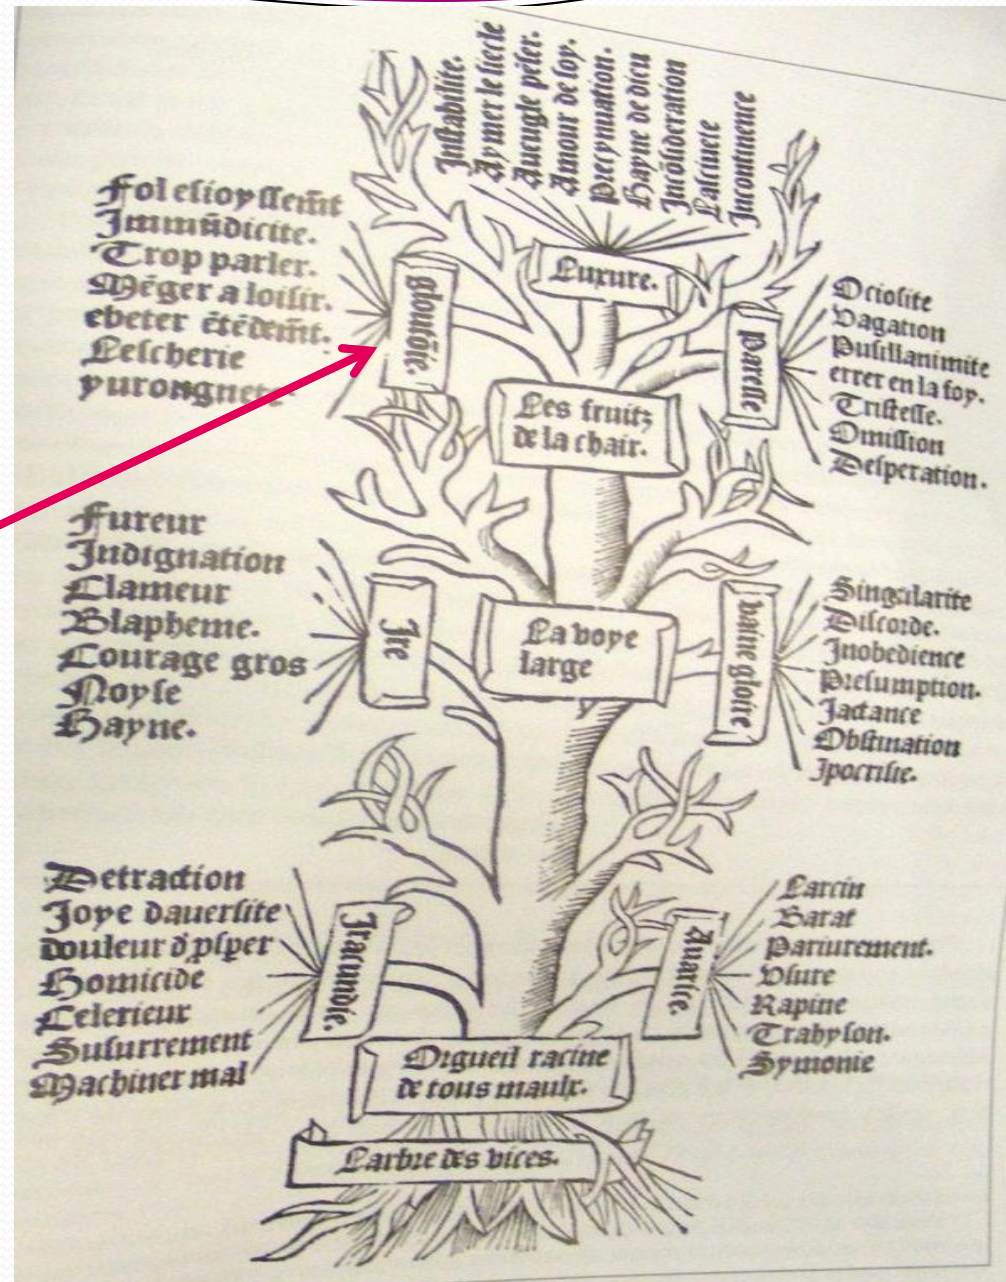 Instabilite.
Aymer le siecle
Aueugle pẽser.
Amour de soy.
Precypuation.
Hayne de dieu
Incõsideration
Lasciuete
Incontinence
Fol esioyssem̃t
Immũdicite.
Trop parler.
Mẽger a loisir.
ebeter ẽtẽdem̃t.
Lescherie
yurongnete
gloutõie.
Luxure.
Paresse
Ociosite
Vagation
Pusillanimite
errer en la foy.
Tristesse.
Omission
Desperation.
Les fruitz
de la chair.
Fureur
Indignation
Clameur
Blapheme.
Courage gros
Noyse
Hayne.
Ire
La voye
large
vaine gloire
Singularite
Discorde.
Inobedience
Presumption.
Jactance
Obstination
Ipocrisie.
Detraction
Joye dauersite
douleur d̕ ꝓsper
Homicide
Celerieur
Susurrement
Machiner mal
Iracundie.
Auarice.
Larcin
Barat
Pariurement.
Vsure
Rapine
Trahyson.
Symonie
Orgueil racine
de tous maulx.
Larbre des vices.